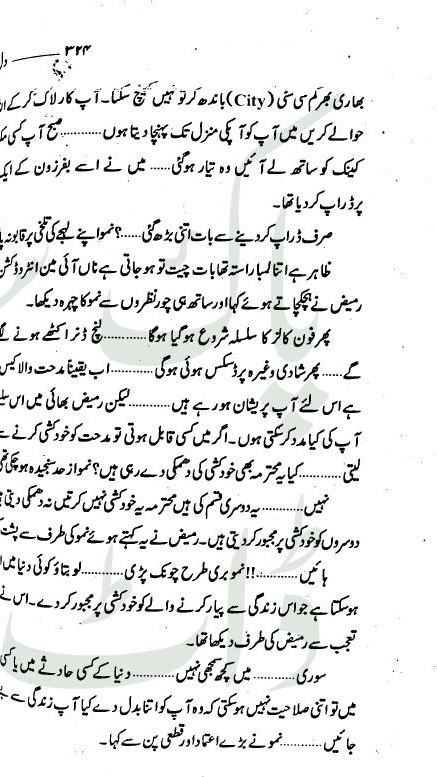 ۳۲۴ ——— دل
بھاری بھرکم سی سٹی (City) باندھ کر تو نہیں کھینچ سکتا۔ آپ کار لاک کر کے
حوالے کریں میں آپ کو آپکی منزل تک پہنچا دیتا ہوں...........صبح آپ کسی
کینک کو ساتھ لے آئیں وہ تیار ہو گئی...... میں نے اسے بفرزون کے ایک
پر ڈراپ کر دیا تھا۔
صرف ڈراپ کر دینے سے بات اتنی بڑھ گئی......؟ نمو اپنے لہجے کی تلخی پر قابو نہ
ظاہر ہے اتنا لمبا راستہ تھا بات چیت تو ہو جاتی ہے ناں آئی مین
رمیض نے ہچکچاتے ہوئے کہا اور ساتھ ہی چور نظروں سے نمو کا چہرہ دیکھا۔
پھر فون کالز کا سلسلہ شروع ہو گیا ہوگا............لنچ ڈنر اکٹھے ہونے
گے...... پھر شادی وغیرہ پر ڈسکس ہوئی ہوگی............اب یقیناً مدحت والا کیس
ہے اس لئے آپ پریشان ہو رہے ہیں...........لیکن رمیض بھائی میں اس
آپ کی کیا مدد کر سکتی ہوں۔ اگر میں کسی قابل ہوتی تو مدحت کو خودکشی کرنے
لیتی...........کیا یہ محترمہ بھی خودکشی کی دھمکی دے رہی ہیں؟ نمو از حد سنجیدہ ہو چکی تھی
نہیں...........یہ دوسری قسم کی ہیں محترمہ یہ خودکشی نہیں کرتیں نہ دھمکی دیتی
دوسروں کو خودکشی پر مجبور کر دیتی ہیں۔ رمیض نے یہ کہتے ہوئے نمو کی طرف سے پشت
ہائیں...........!! نمو بری طرح چونک پڑی...........لو بتاؤ کوئی دنیا میں
ہو سکتا ہے جو اس زندگی سے پیار کرنے والے کو خودکشی پر مجبور کر دے۔ اس نے
تعجب سے رمیض کی طرف دیکھا تھا۔
سوری............ میں کچھ سمجھی نہیں............ دنیا کے کسی حادثے میں یا کسی
میں تو اتنی صلاحیت نہیں ہو سکتی کہ وہ آپ کو اتنا بدل دے کیا آپ زندگی سے
جائیں...........نمو نے بڑے اعتماد اور قطعی پن سے کہا۔